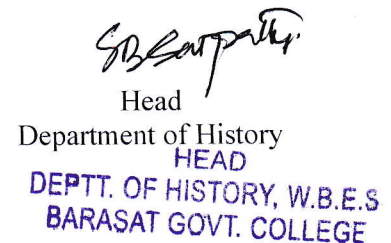 Head
Department of History
HEAD
DEPTT. OF HISTORY, W.B.E.S
BARASAT GOVT. COLLEGE